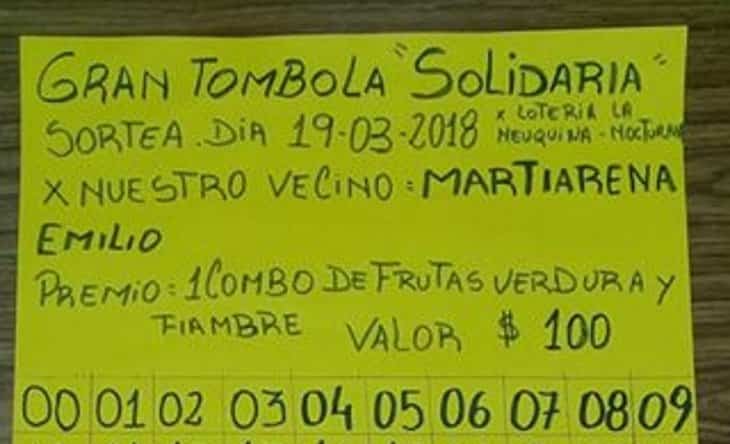 GRAN TOMBOLA "SOLIDARIA"
SORTEA. DIA 19-03-2018 x LOTERIA LA
NEUQUINA - NOCTURNA
X NUESTRO VECINO: MARTIARENA
EMILIO
PREMIO: 1 COMBO DE FRUTAS VERDURA Y
FIAMBRE VALOR $ 100
00 01 02 03 04 05 06 07 08 09